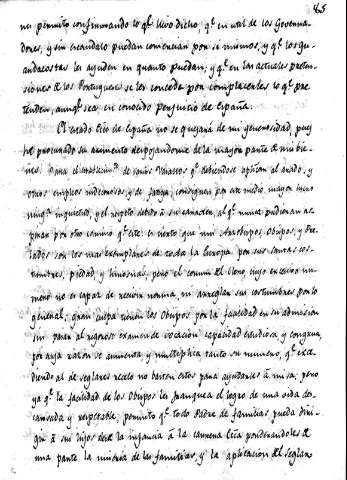 85
nu permito confirmando lo qͤ llevo dicho; qͤ en util de los Governa-
dores, y sin escandalo puedan comerciar por si mismos, y qͤ los gu-
andacostas les ayuden en quanto puedan; y qͤ en las actuales preten-
siones de los Portugueses se les conceda por complacerles lo qͤ pre-
tenden, aunqͤ sea en conocido perjuicio de España.
El estado Ecco de España no se quejará de mi generosidad, pues
he procurado su aumento despojandome de la mayor parte de mis bie-
nes. Para el
de varios Vasallos qͤ debiendose aplicar al arado, y
otros empleos indecorosos, y de fatiga, consiguen por este medio, mayor
quietud, y el respeto debido a su caracter, al qͤ nunca pudieran as-
pirar por otro camino qͤ este: es cierto que mis Arzobispos, Obispos, y Pre-
lados son los mas exemplares de toda la Europa por sus santas cos-
tumbres, piedad, y limosnas; pero el comun del Clero, cuyo excesivo nu-
mero no es capaz de recivir norma, ni arreglar sus costumbres por lo
general; gran culpa tienen los Obispos por la facilidad en su admision
sin pasar al rigoroso examen de vocacion, capacidad estudiosa, y congrua,
por cuya razon se aumenta, y multiplica tanto su numero, qͤ exce-
diendo al de seglares recelo no basten estos para ayudarles a misa; pero
ya qͤ la facilidad de los Obispos les franquea el logro de una vida des-
cansada y respetable, permito qͤ todo Padre de familias pueda diri-
gir a sus hijos desde la infancia a la carrera Ecca ponderandoles de
una parte la miseria de las familias, y la aplicacion del seglar